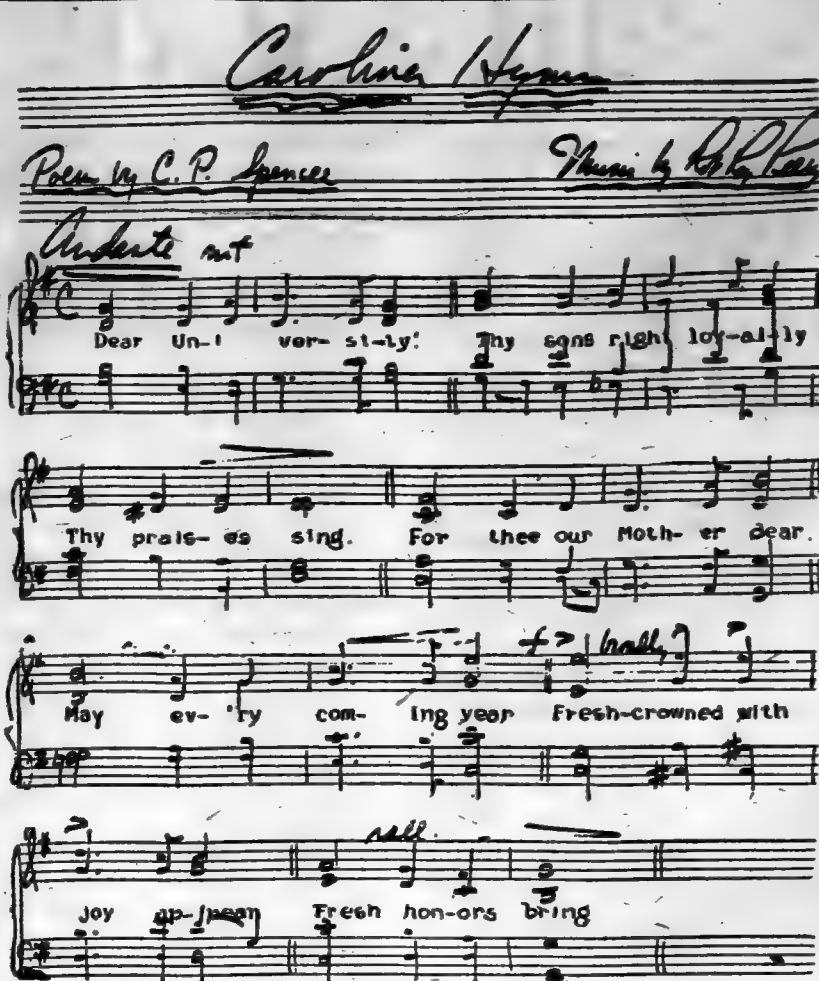 Carolina Hymn
Poem by C. P. Spencer Music by
Andante mf
Dear Un-i ver- si-ty! Thy sons right loy-al-ly
Thy prais- es sing. For thee our Moth- er dear.
f broadly
May ev- 'ry com- ing year Fresh-crowned with
rall.
joy ap-pear Fresh hon-ors bring